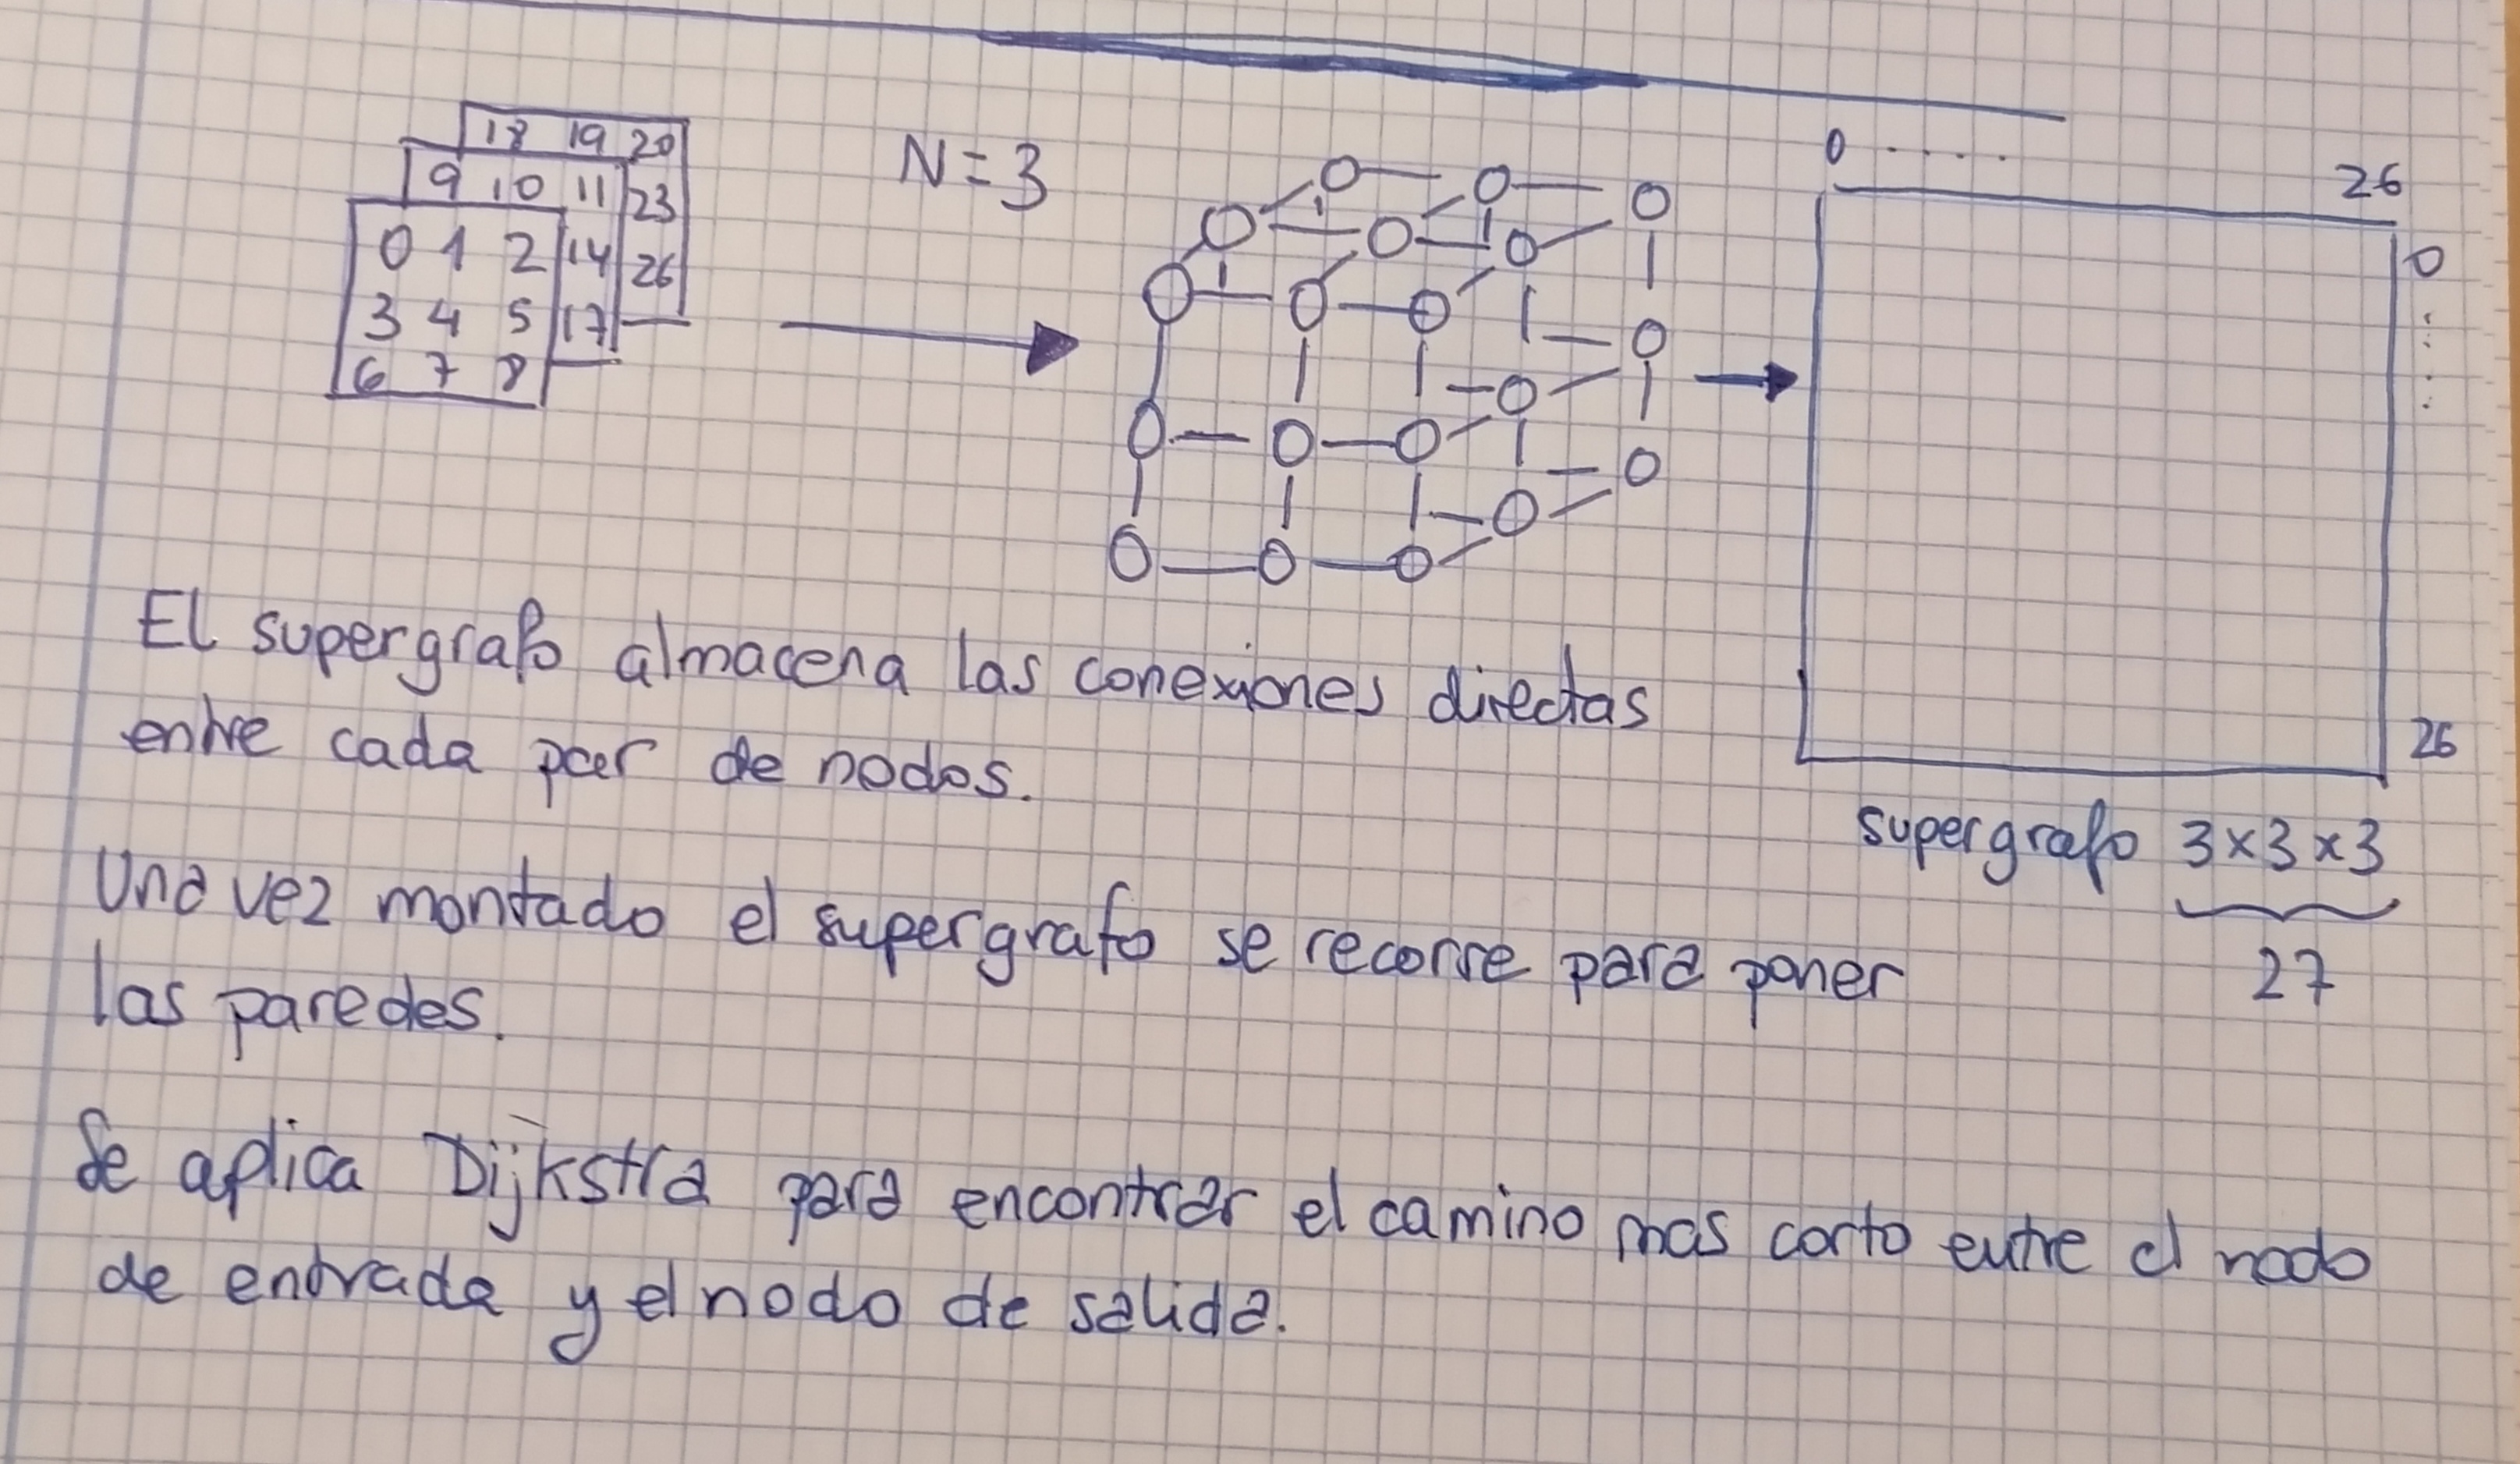 18 19 20
9 10 11 23
0 1 2 14 26
3 4 5 17
6 7 8
N = 3
0 .....
26
0
26
supergrafo 3x3x3
27
El supergrafo almacena las conexiones directas
entre cada par de nodos.
Una vez montado el supergrafo se recorre para poner
las paredes.
Se aplica Dijkstra para encontrar el camino mas corto entre el nodo
de entrada y el nodo de salida.